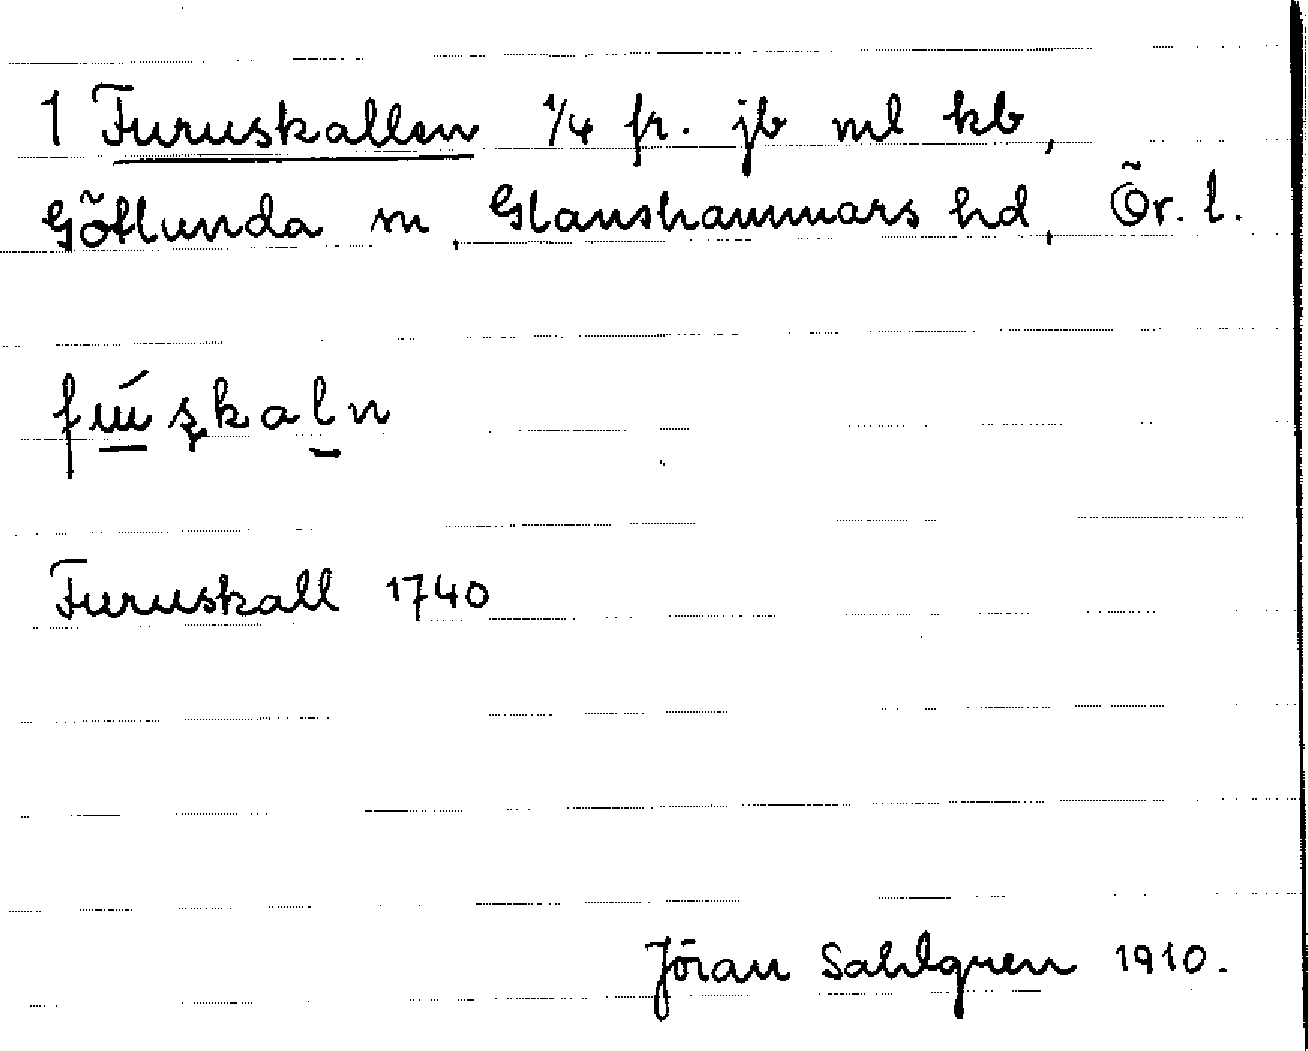 1 Furuskallen 1/4 fr. jb ml kb,
Götlunda sn, Glanshammars hd, Ör. l.
Furuskall 1740
Jöran Sahlgren 1910.